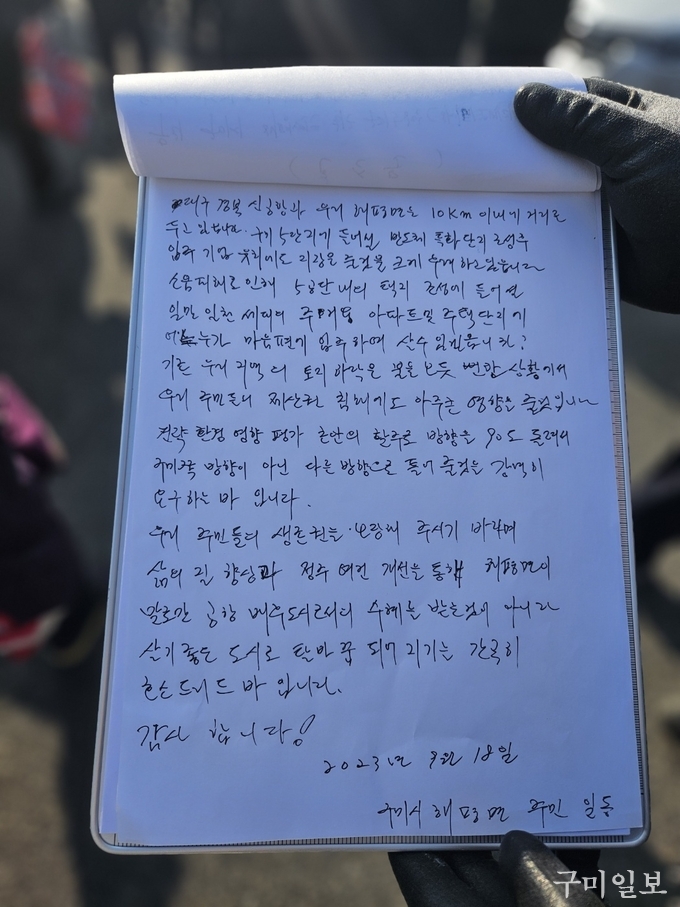 대구 경북 신공항과 우리 해평면은 10Km 이내의 거리로
두고 있습니다. 구미 5단지가 들어설 반도체 특화단지 조성후
입주 기업 유치에도 지장을 줄것을 크게 우려하고있습니다
소음피해로 인해 5공단내의 택지 조성에 들어설
일만 일천 세대의 주거용 아파트및 주택단지가
어느누가 마음편케 입주하며 살수 있겠습니까?
기존 우리 지역의 토지 하락은 불을 보듯 뻔한 상황에서
우리 주민들의 재산권 침해에도 아주큰 영향을 줄것입니다
전략 환경 영향 평가 초안의 활주로 방향을 90도 돌려서
구미쪽 방향이 아닌 다른 방향으로 틀어 줄것을 강력히
요구하는 바 입니다.
우리 주민들의 생존권을 보장해 주시기 바라며
삶의 질 향상과 정주 여건 개선을 통해 해평면이
말로만 공항 배후도시로서의 수혜를 받는것이 아니라
살기좋은 도시로 탈바꿈 되어 지기를 간곡히
호소드리는 바 입니다.
감사 합니다!
2023년 9월 18일
구미시 해평면 주민 일동
구미일보